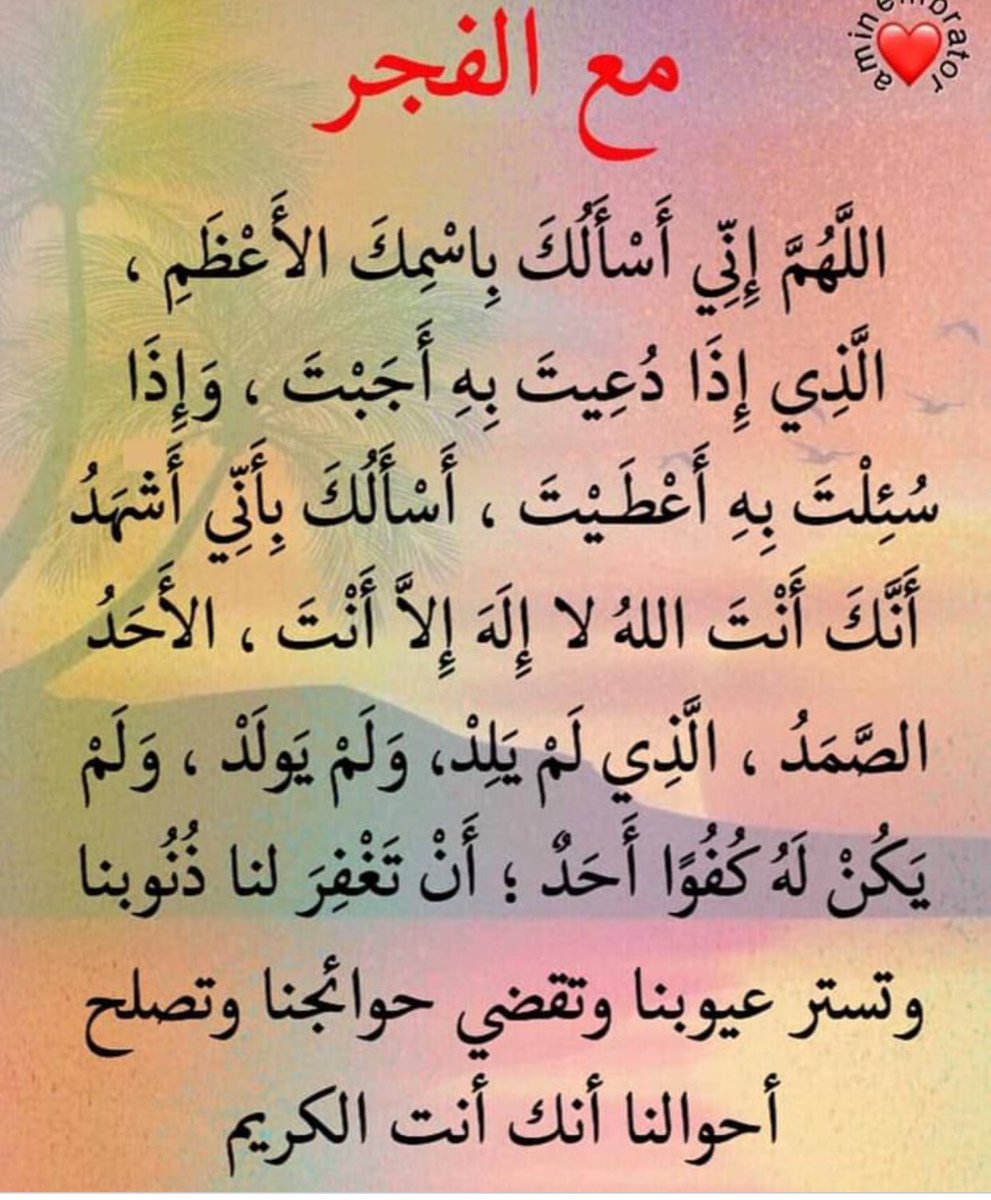 مع الفجر
اللَّهُمَّ إِنِّي أَسْأَلُكَ بِاسْمِكَ الأَعْظَمِ ،
الَّذِي إِذَا دُعِيتَ بِهِ أَجَبْتَ ، وَإِذَا
سُئِلْتَ بِهِ أَعْطَيْتَ ، أَسْأَلُكَ بِأَنِّي أَشْهَدُ
أَنَّكَ أَنْتَ اللهُ لا إِلَهَ إِلاَّ أَنْتَ ، الأَحَدُ
الصَّمَدُ ، الَّذِي لَمْ يَلِدْ، وَلَمْ يَولَدْ ، وَلَمْ
يَكُنْ لَهُ كُفُوًا أَحَدٌ ؛ أَنْ تَغْفِرَ لنا ذُنُوبنا
وتستر عيوبنا وتقضي حوائجنا وتصلح
أحوالنا أنك أنت الكريم